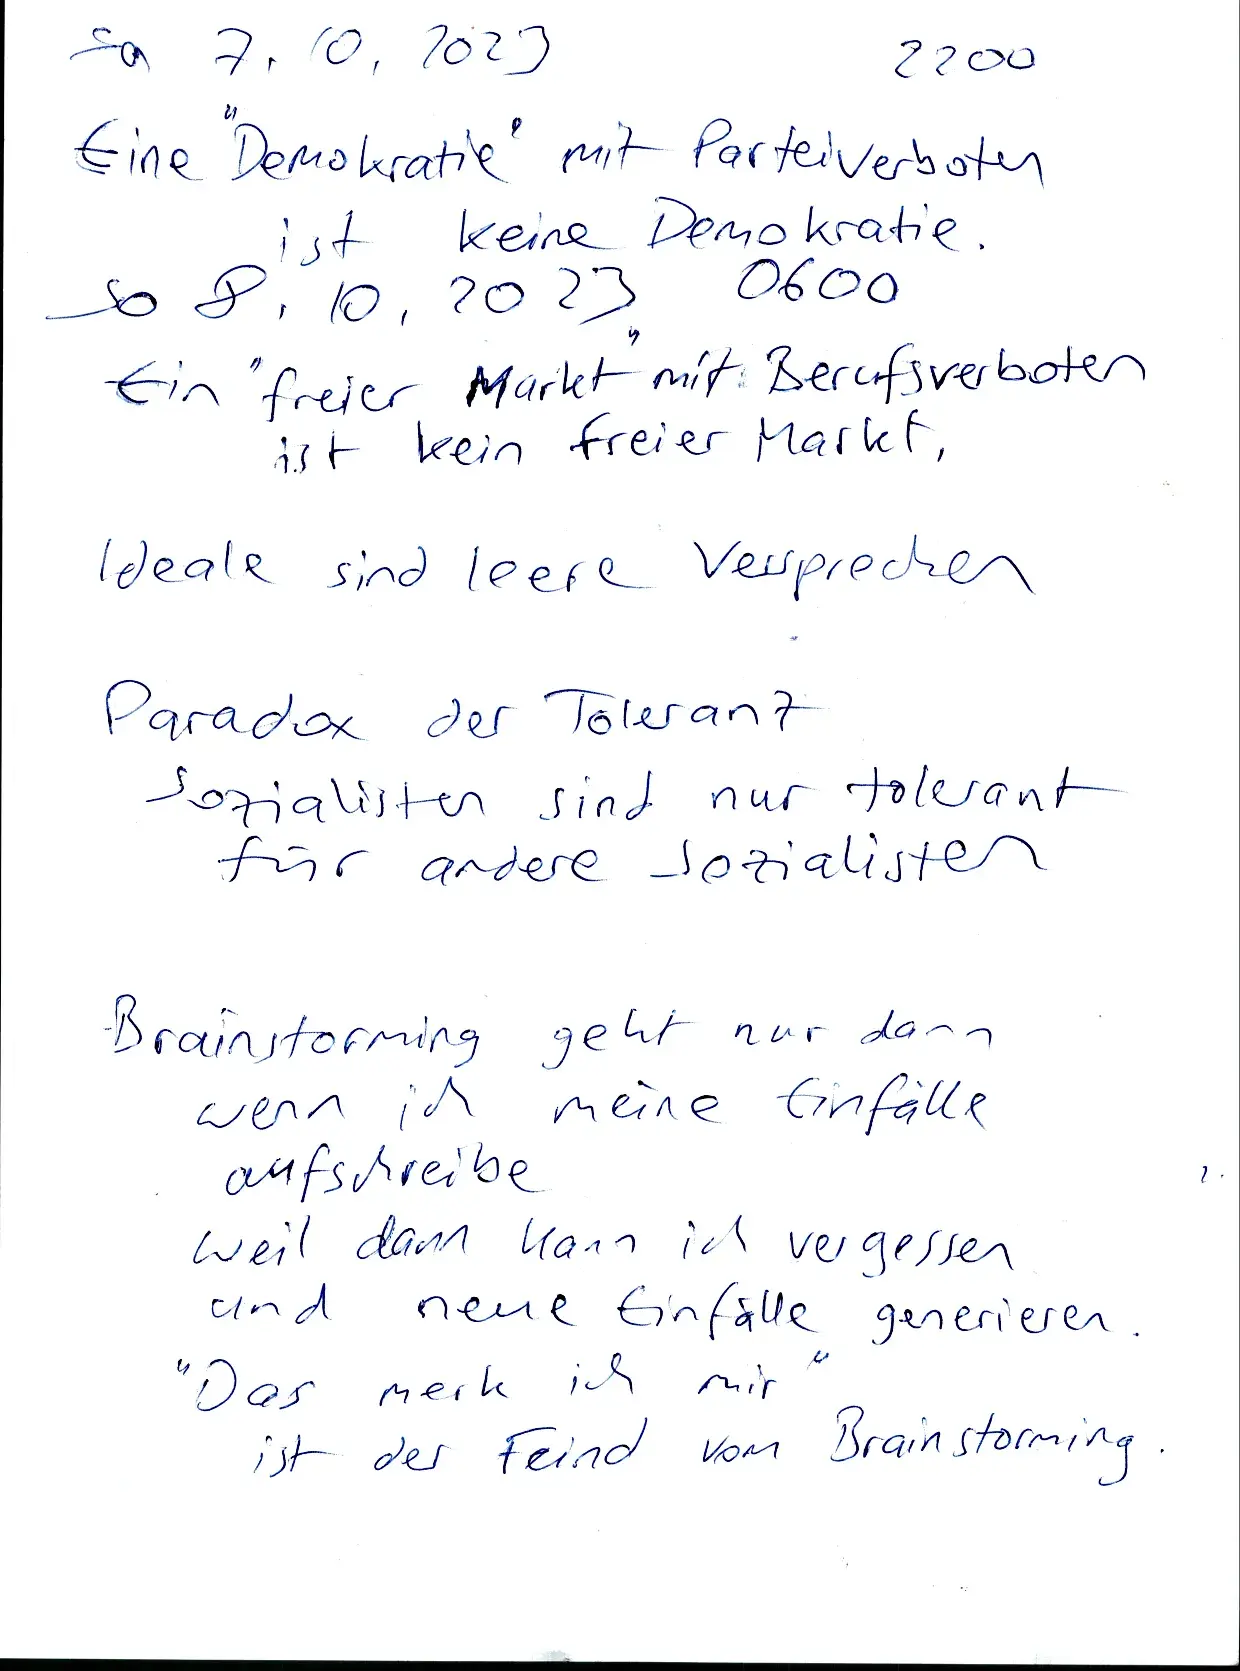 Sa 7.10.2023 2200
Eine "Demokratie" mit Parteiverboten
ist keine Demokratie.
So 8.10.2023 0600
Ein "freier Markt" mit Berufsverboten
ist kein freier Markt.
Ideale sind leere Versprechen
Paradox der Toleranz
Sozialisten sind nur tolerant
für andere Sozialisten
Brainstorming geht nur dann
wenn ich meine Einfälle
aufschreibe
weil dann kann ich vergessen
und neue Einfälle generieren.
"Das merk ich mir"
ist der Feind vom Brainstorming.